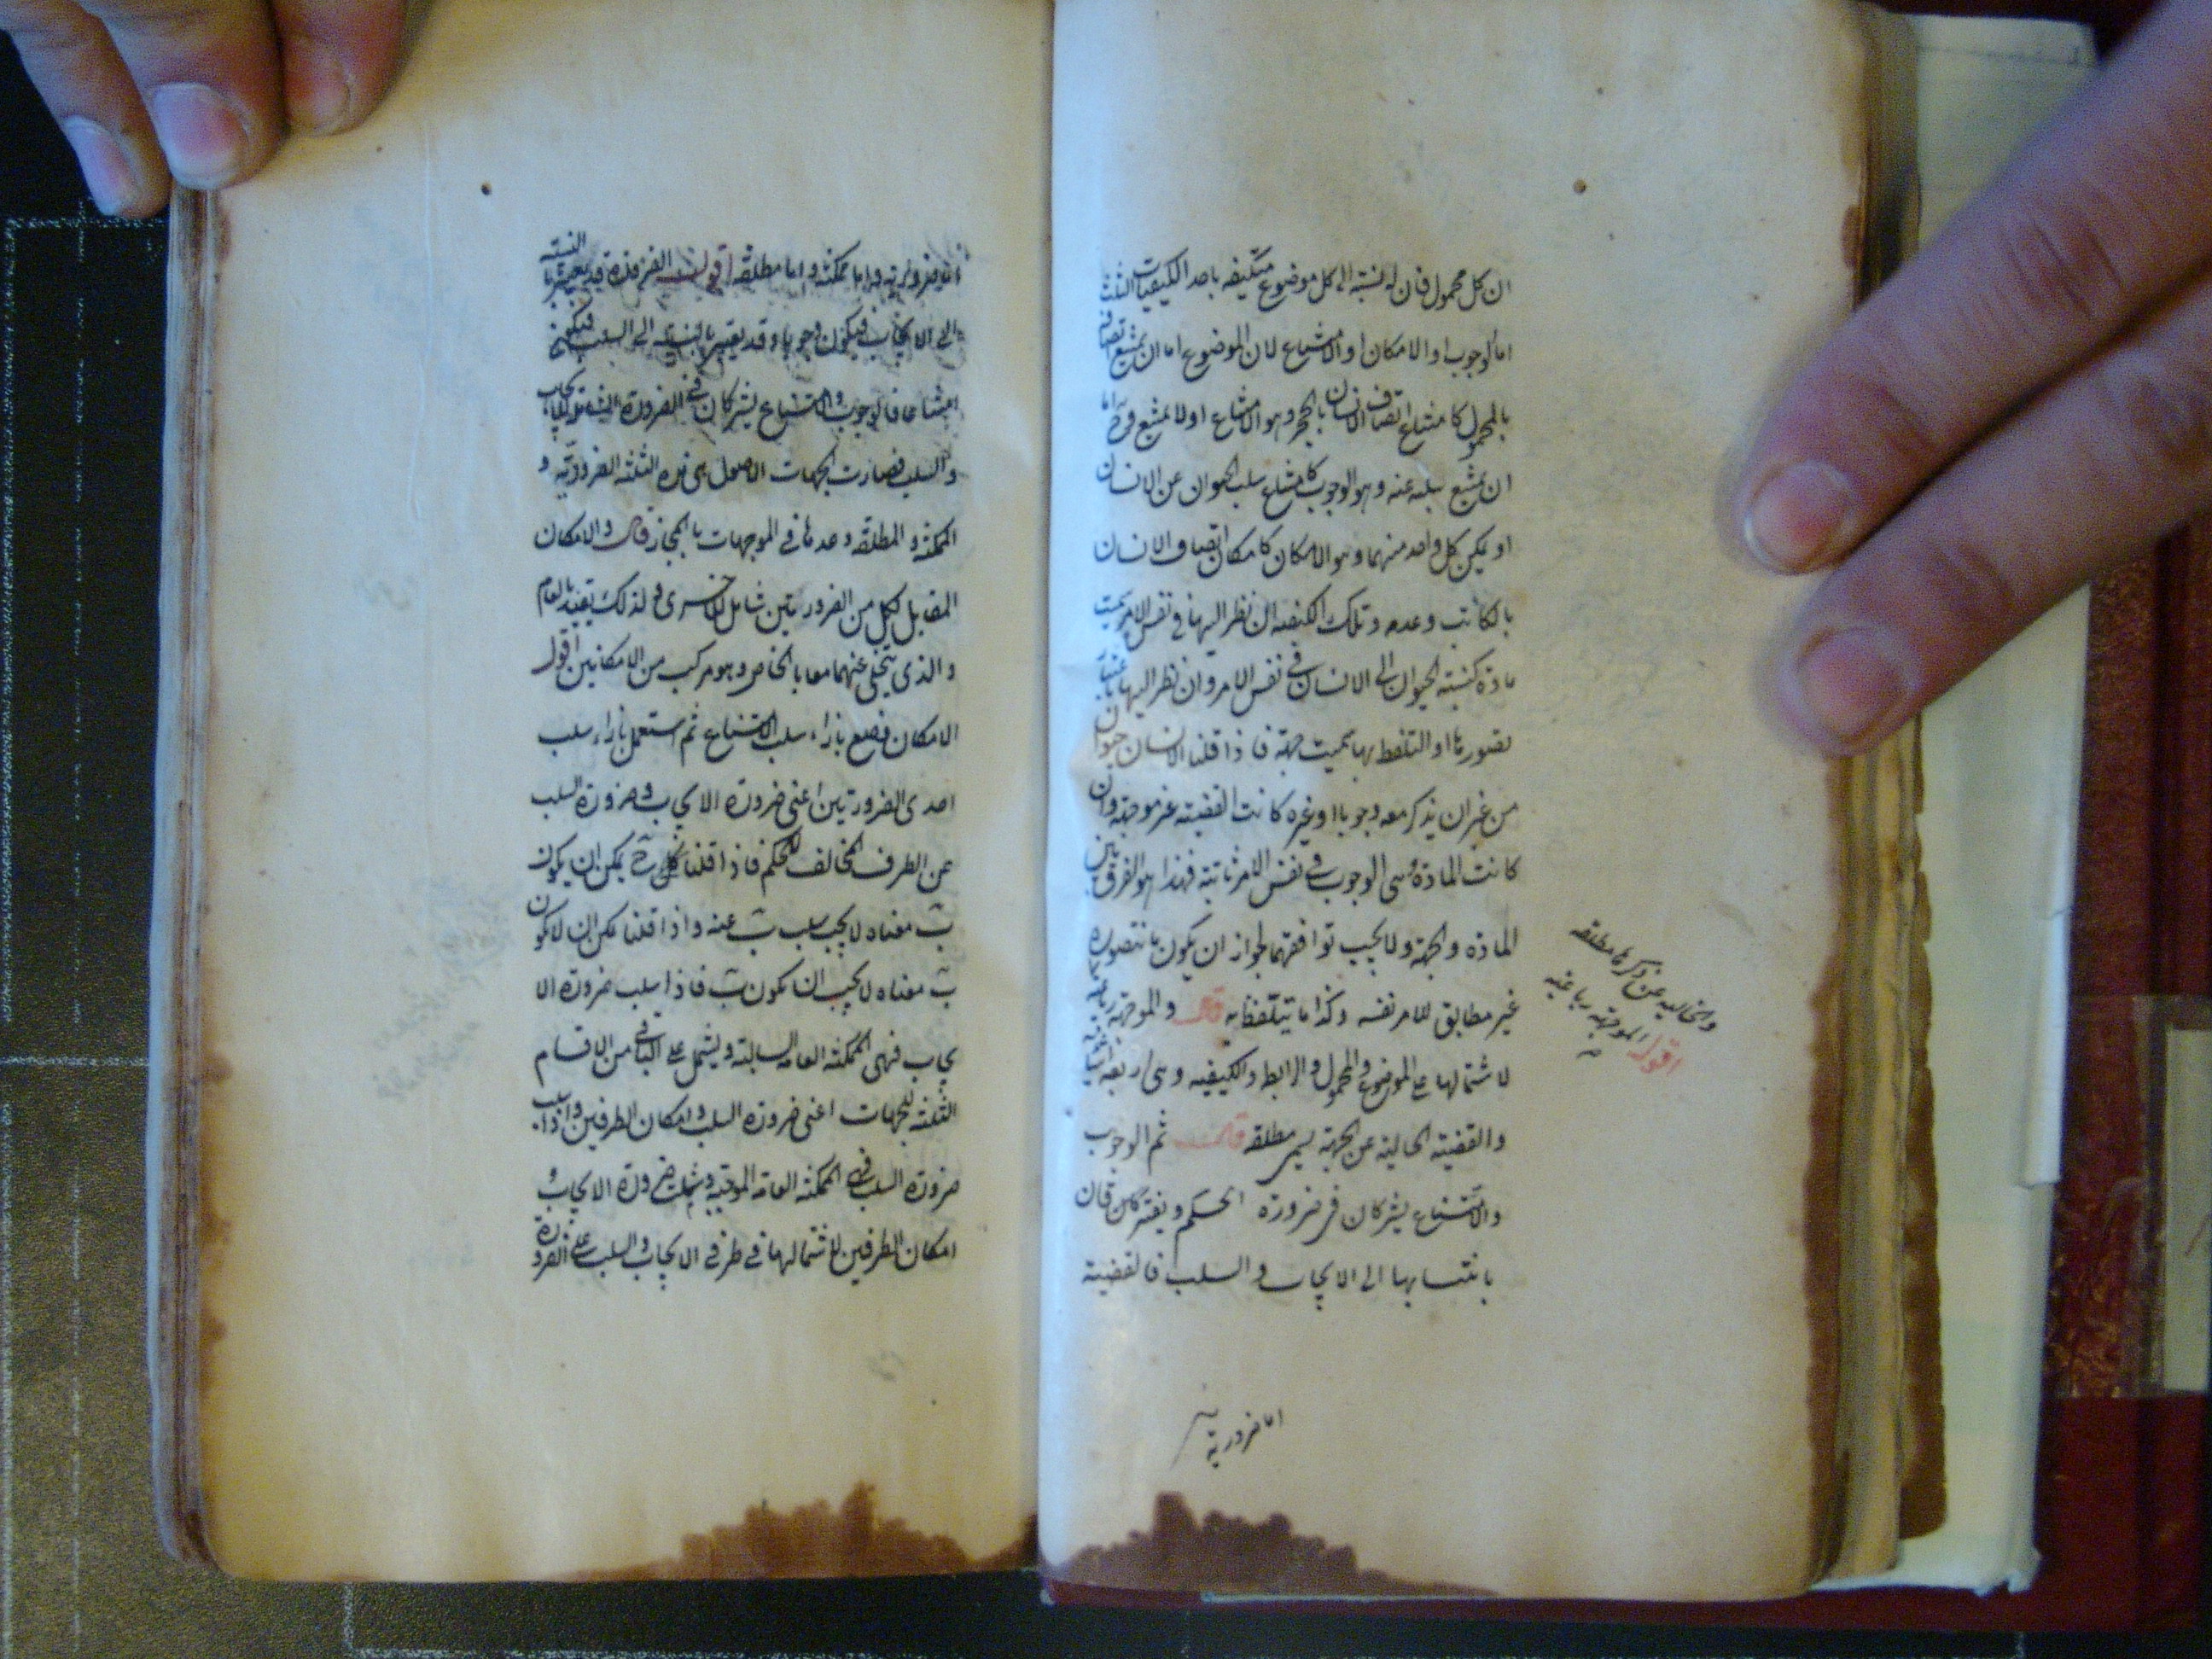 ان كل محمول فان له نسبة الى كل موضوع متكيفه باحد الكيفيات الثلث
اما الوجوب او الامكان او الامتناع لان الموضوع اما ان يمتنع اتصافه
بالمحمول كامتناع اتصاف الانسان بالحجر وهو الامتناع اولا يمتنع فح اما
ان يمتنع سلبه عنه وهو الوجوب كامتناع سلب الحيوان عن الانسان
او يمكن كل واحد منهما وهو الامكان كامكان اتصاف الانسان
بالكاتب وعدمه وتلك الكيفيه ان نظر اليها في نفس الامر سميت
مادة كنسبته الحيوان الى الانسان في نفس الامر وان نظر اليها باعتبار
تصورها او التلفظ بها سميت جهة فاذا قلنا الانسان حيوان
من غير ان يذكر معه وجوبا او غيره كانت القضيته غير موجهة وان
كانت المادة هي الوجوب في نفس الامر ثابتة فهذا هو الفرق بين
المادة والجهة ولا يجب توافقهما لجواز ان يكون ما نتصوره
غير مطابق للامر نفسه وكذا ما يتلفظ به قال والموجهة رباعية
لاشتمالها على الموضوع والمحمول والرابط والكيفيه وهي اربعه اشياء
والقضيته الخالية عن الجهة يسمى مطلقه قال ثم الوجوب
والامتناع يشتركان في ضرورة الحكم ويفترقان
بانتسابها الى الايجاب والسلب فالقضية
والخاليه عن ذكرها مطلقه
اقول الموجهة رباعية
اما ضرورية
اما ضرورية واما ممكنة واما مطلقة اقول الضرورة قد يعتبر بالنسبة
الى الايجاب فيكون وجوبا وقد يعتبر بالنسبة الى السلب فيكون
امتناعا فالوجوب والامتناع يشتركان في الضرورة الشاملة للايجاب
والسلب فصارت الجهات الاصول هي هذه الثلثة الضرورية و
الممكنة والمطلقة وعدها في الموجهات بالمجاز قال والامكان
المقابل لكل من الضروريتين شامل للاخرى ولذلك يقيد بالعام
والذي يتخلى عنهما معا بالخاص وهو مركب من الامكانين اقول
الامكان وضع بازاء سلب الامتناع ثم استعمل بازاء سلب
احدى الضرورتين اعني ضرورة الايجاب وضرورة السلب
عن الطرف المخالف للحكم فاذا قلنا كل ج يمكن ان يكون
ب معناه لا يجب سلب ب عنه واذا قلنا يمكن ان لا يكون
ب معناه لا يجب ان يكون ب فاذا سلب ضرورة الا
يجاب فهي الممكنة العامة السالبة ويشمل على الباقي من الاقسام
الثلثة للجهات اعني ضرورة السلب وامكان الطرفين واذا سلب
ضرورة السلب فهي الممكنة العامة الموجبة وشملت ضرورة الايجاب و
امكان الطرفين لاشتمالهما في طرفي الايجاب والسلب على الضرورة